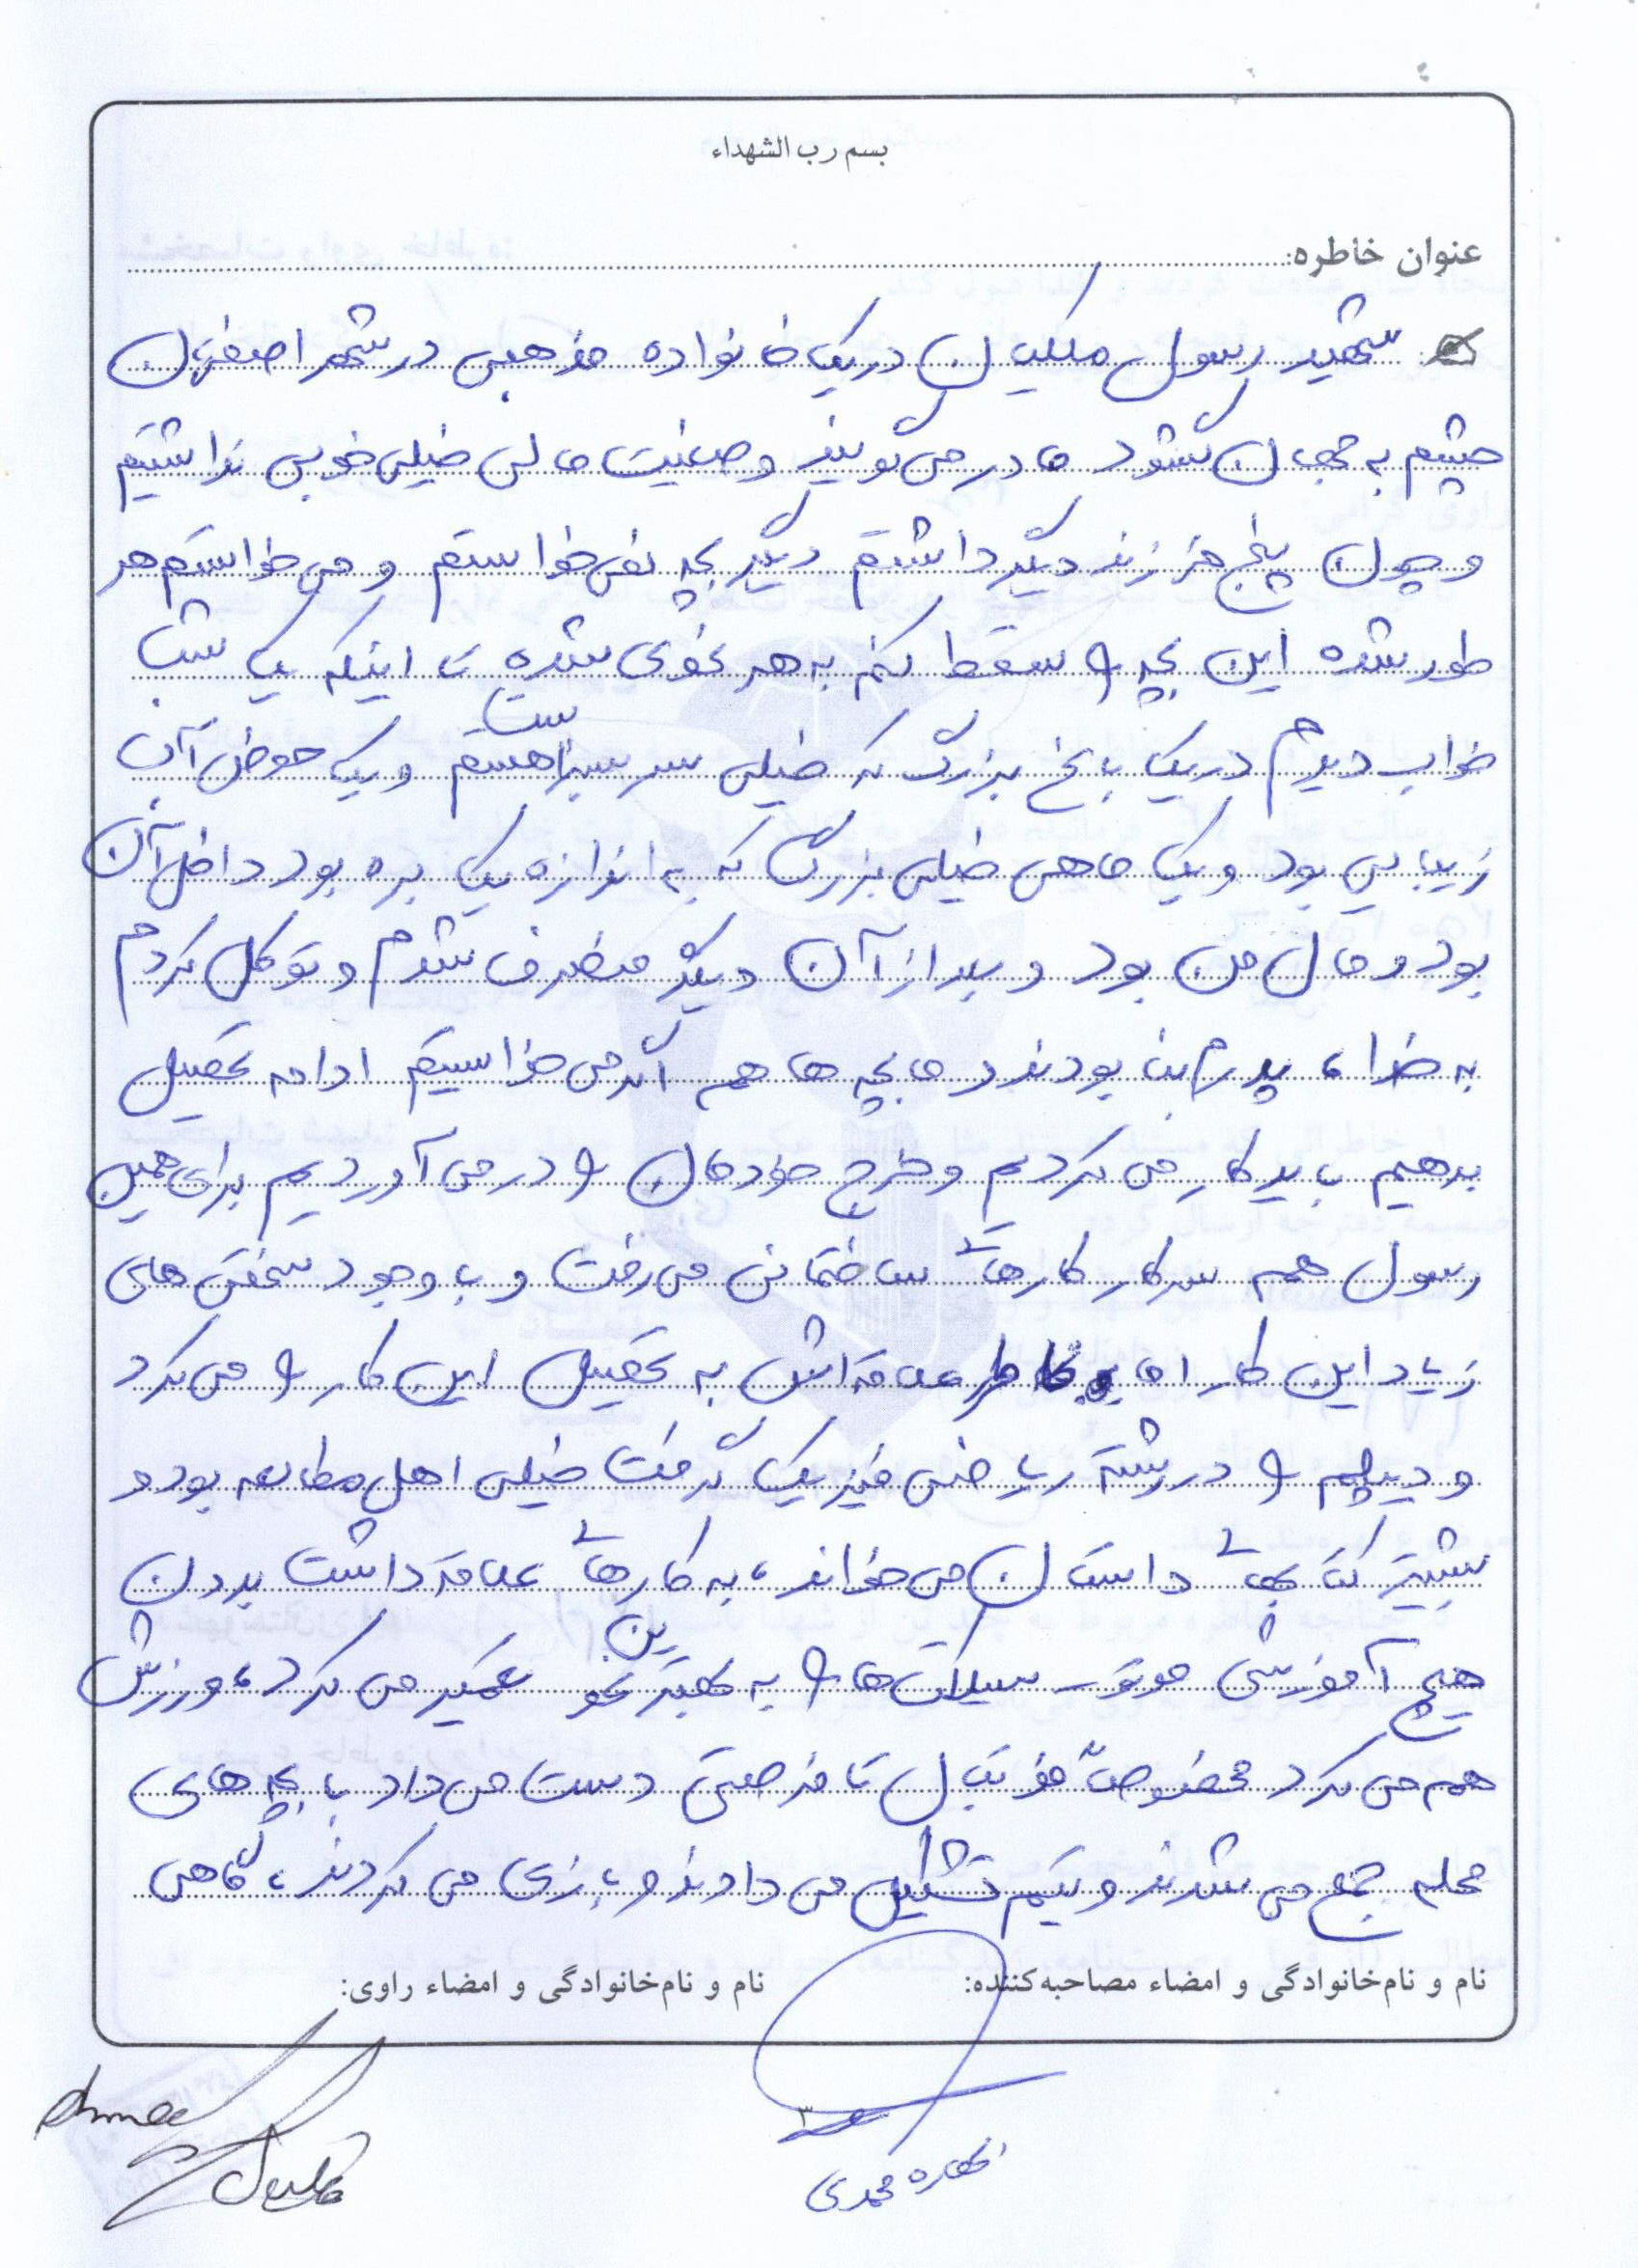 بسم رب الشهداء
عنوان خاطره:
شهید رسول ملکیان در یک خانواده مذهبی در شهر اصفهان
چشم به جهان گشود مادر می گویند وضعیت مالی خیلی خوبی نداشتیم
و چون پنج فرزند دیگر داشتم دیگر بچه نمی خواستم و می خواستم هر
طور شده این بچه را سقط کنم به هر نحوی شده تا اینکه یک شب
خواب دیدم در یک باغ بزرگ که خیلی سرسبز است هستم و یک حوض آب
زیبایی بود و یک ماهی خیلی بزرگ که به اندازه یک بره بود داخل آن
بود و مال من بود و بعد از آن دیگر منصرف شدم و توکل کردم
به خدا، پدرم بنا بودند و ما بچه ها هم اگر می خواستیم ادامه تحصیل
بدهیم باید کار می کردیم و خرج خودمان را در می آوردیم برای همین
رسول هم سرکار کارهای ساختمانی می رفت و با وجود سختی های
زیاد این کار اما بخاطر علاقه اش به تحصیل این کار را می کرد
و دیپلم را در رشته ریاضی فیزیک گرفت خیلی اهل مطالعه بود و
بیشتر کتابهای داستان می خواند، به کارهای علاقه داشت بدون
هیچ آموزشی موتور سیکلت ها را به بهترین نحو تعمیر می کرد، ورزش
هم می کرد مخصوصاً فوتبال تا فرصتی دست می داد با بچه های
محله جمع می شدند و تیم تشکیل می دادند و بازی می کردند، گاهی
نام و نام‌خانوادگی و امضاء مصاحبه‌کننده:
نام و نام‌خانوادگی و امضاء راوی:
۳
زهره محمدی